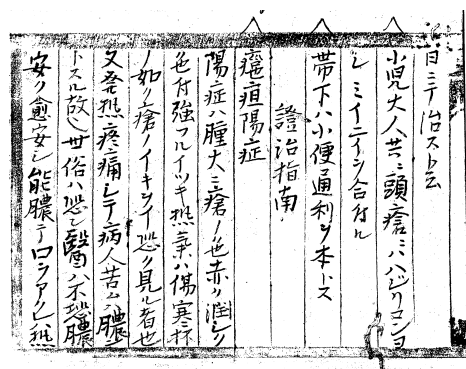 目ニテ治スト云
小児大人共ニ頭瘡ニハハジリコンヨ
シミイニイシ合付ル
帯下ハ小便通利ヲ本トス
證治指南
癰疽陽症
陽症ハ腫大ニ瘡ノ色赤ク潤シク
色付強フルイツキ熱気ハ傷寒杯
ノ如ク瘡ノイキヲイ恐ク見ル者也
又発熱疼痛シテ病人苦ム膿
トスル故也世俗ハ恐レ醫ハ不恐膿
安ク愈安シ能膿テ口ヲアケ熱